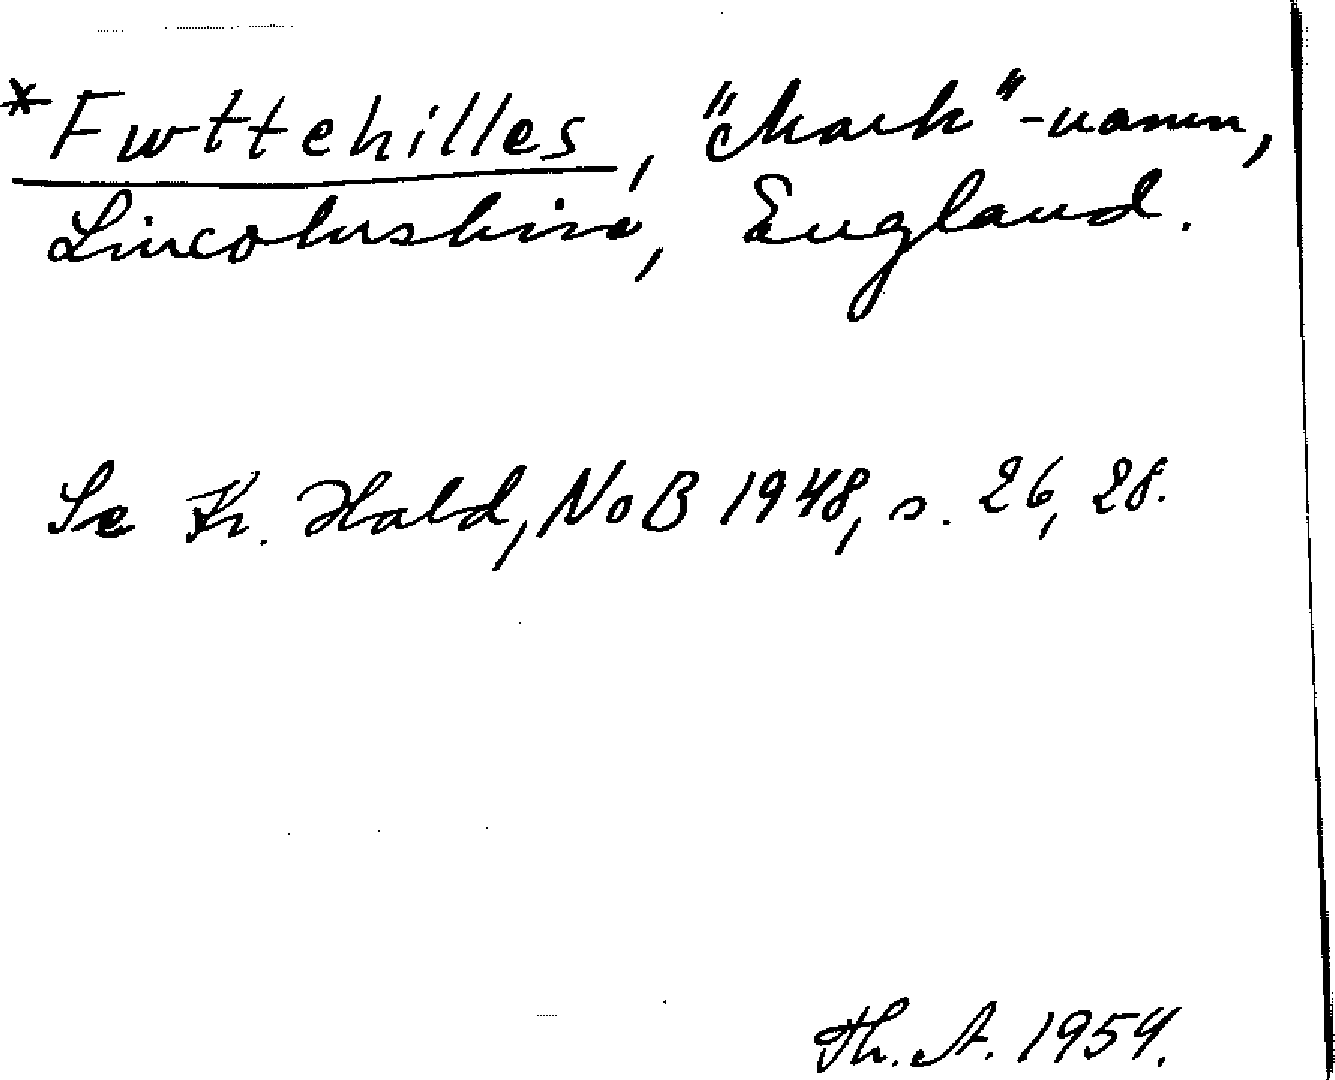 *Fwttehilles, "Mark"-namn,
Lincolnshire, England.
Se Kr. Hald, NoB 1948, s. 26, 28.
Th. A. 1954.